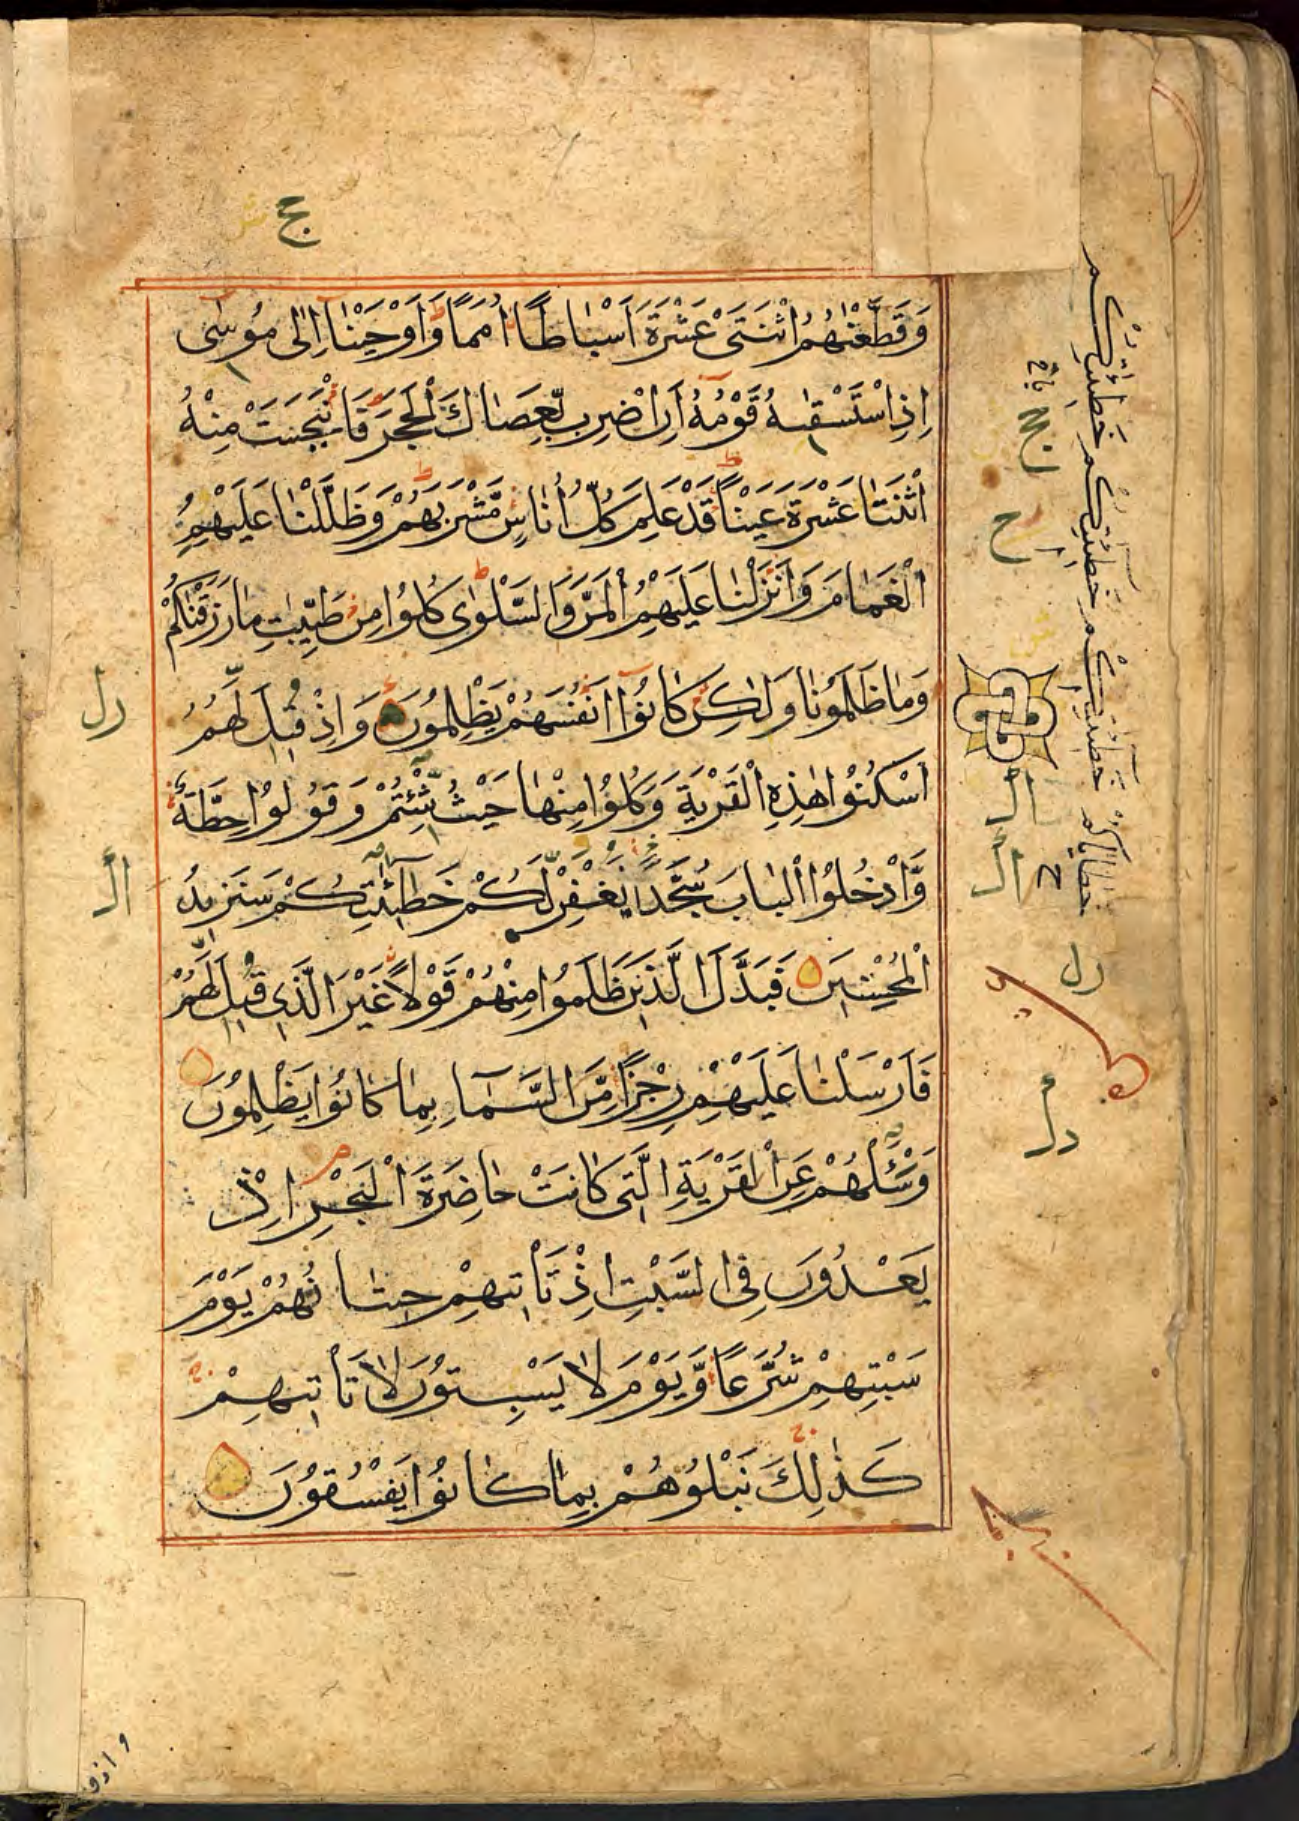 وَقَطَّعْنٰهُمُ اثْنَتَىْ عَشْرَةَ اَسْبَاطًا اُمَمًا وَّاَوْحَيْنَا اِلٰى مُوسٰٓى
اِذِ اسْتَسْقٰىهُ قَوْمُهٗٓ اَنِ اضْرِبْ بِّعَصَاكَ الْحَجَرَ فَانْۢبَجَسَتْ مِنْهُ
اثْنَتَا عَشْرَةَ عَيْنًا قَدْ عَلِمَ كُلُّ اُنَاسٍ مَّشْرَبَهُمْ وَظَلَّلْنَا عَلَيْهِمُ
الْغَمَامَ وَاَنْزَلْنَا عَلَيْهِمُ الْمَنَّ وَالسَّلْوٰى كُلُوْا مِنْ طَيِّبٰتِ مَا رَزَقْنٰكُمْ
وَمَا ظَلَمُوْنَا وَلٰكِنْ كَانُوْٓا اَنْفُسَهُمْ يَظْلِمُوْنَ وَاِذْ قِيْلَ لَهُمُ
اسْكُنُوْا هٰذِهِ الْقَرْيَةَ وَكُلُوْا مِنْهَا حَيْثُ شِئْتُمْ وَقُوْلُوْا حِطَّةٌ
وَّادْخُلُوا الْبَابَ سُجَّدًا نَغْفِرْ لَّكُمْ خَطِيْٓئٰتِكُمْ سَنَزِيْدُ
الْمُحْسِنِيْنَ فَبَدَّلَ الَّذِيْنَ ظَلَمُوْا مِنْهُمْ قَوْلًا غَيْرَ الَّذِى قِيْلَ لَهُمْ
فَاَرْسَلْنَا عَلَيْهِمْ رِجْزًا مِّنَ السَّمَآءِ بِمَا كَانُوْا يَظْلِمُوْنَ
وَسْـَٔلْهُمْ عَنِ الْقَرْيَةِ الَّتِى كَانَتْ حَاضِرَةَ الْبَحْرِ اِذْ
يَعْدُوْنَ فِى السَّبْتِ اِذْ تَاْتِيْهِمْ حِيْتَانُهُمْ يَوْمَ
سَبْتِهِمْ شُرَّعًا وَّيَوْمَ لَا يَسْبِتُوْنَ لَا تَاْتِيْهِمْ
كَذٰلِكَ نَبْلُوْهُمْ بِمَا كَانُوْا يَفْسُقُوْنَ